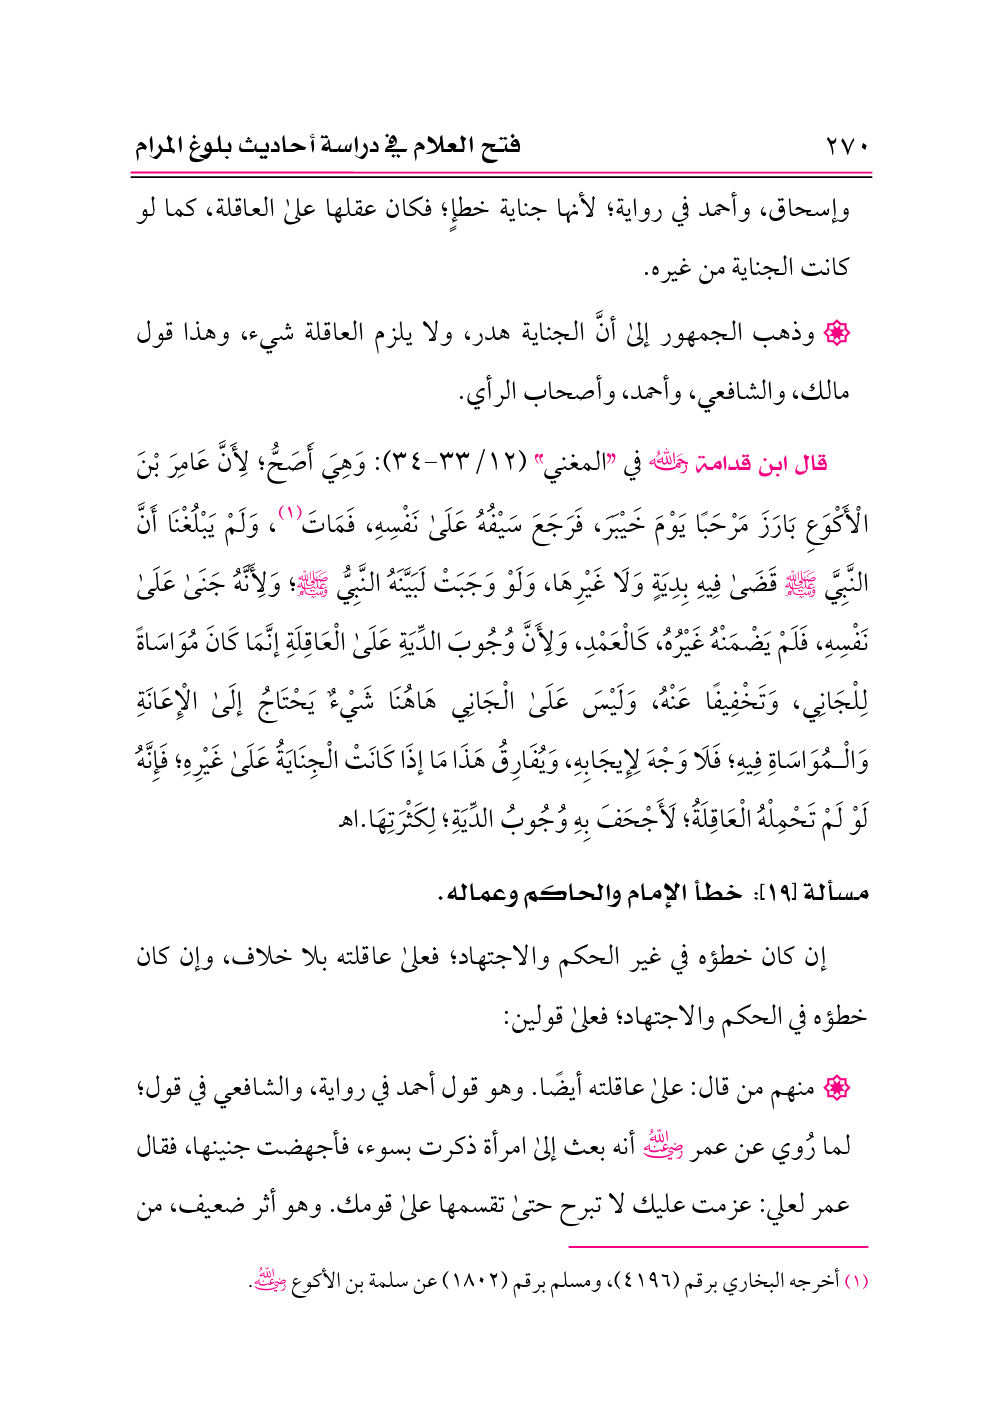 ٢٧٠
فتح العلام في دراسة أحاديث بلوغ المرام
وإسحاق، وأحمد في رواية؛ لأنها جناية خطإٍ؛ فكان عقلها علىٰ العاقلة، كما لو
كانت الجناية من غيره.
۞ وذهب الجمهور إلىٰ أنَّ الجناية هدر، ولا يلزم العاقلة شيء، وهذا قول
مالك، والشافعي، وأحمد، وأصحاب الرأي.
قال ابن قدامة رحمه الله في "المغني" (١٢/ ٣٣-٣٤): وَهِيَ أَصَحُّ؛ لِأَنَّ عَامِرَ بْنَ
الْأَكْوَعِ بَارَزَ مَرْحَبًا يَوْمَ خَيْبَرَ، فَرَجَعَ سَيْفُهُ عَلَىٰ نَفْسِهِ، فَمَاتَ(١)، وَلَمْ يَبْلُغْنَا أَنَّ
النَّبِيَّ ﷺ قَضَىٰ فِيهِ بِدِيَةٍ وَلَا غَيْرِهَا، وَلَوْ وَجَبَتْ لَبَيَّنَهُ النَّبِيُّ ﷺ؛ وَلِأَنَّهُ جَنَىٰ عَلَىٰ
نَفْسِهِ، فَلَمْ يَضْمَنْهُ غَيْرُهُ، كَالْعَمْدِ، وَلِأَنَّ وُجُوبَ الدِّيَةِ عَلَىٰ الْعَاقِلَةِ إنَّمَا كَانَ مُوَاسَاةً
لِلْجَانِي، وَتَخْفِيفًا عَنْهُ، وَلَيْسَ عَلَىٰ الْجَانِي هَاهُنَا شَيْءٌ يَحْتَاجُ إلَىٰ الْإِعَانَةِ
وَالْـمُوَاسَاةِ فِيهِ؛ فَلَا وَجْهَ لِإِيجَابِهِ، وَيُفَارِقُ هَذَا مَا إذَا كَانَتْ الْجِنَايَةُ عَلَىٰ غَيْرِهِ؛ فَإِنَّهُ
لَوْ لَمْ تَحْمِلْهُ الْعَاقِلَةُ؛ لَأَجْحَفَ بِهِ وُجُوبُ الدِّيَةِ؛ لِكَثْرَتِهَا.اهـ
مسألة [١٩]: خطأ الإمام والحاكم وعماله.
إن كان خطؤه في غير الحكم والاجتهاد؛ فعلىٰ عاقلته بلا خلاف، وإن كان
خطؤه في الحكم والاجتهاد؛ فعلىٰ قولين:
۞ منهم من قال: علىٰ عاقلته أيضًا. وهو قول أحمد في رواية، والشافعي في قول؛
لما رُوي عن عمر رضي الله عنه أنه بعث إلىٰ امرأة ذكرت بسوء، فأجهضت جنينها، فقال
عمر لعلي: عزمت عليك لا تبرح حتىٰ تقسمها علىٰ قومك. وهو أثر ضعيف، من
(١) أخرجه البخاري برقم (٤١٩٦)، ومسلم برقم (١٨٠٢) عن سلمة بن الأكوع رضي الله عنه.